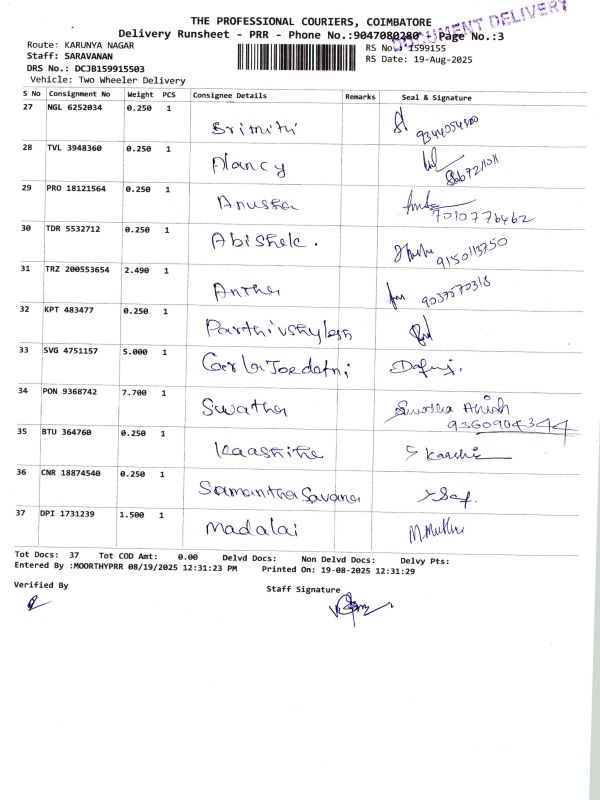 THE PROFESSIONAL COURIERS, COIMBATORE
DOCUMENT DELIVERY
Delivery Runsheet - PRR - Phone No.:9047080280 Page No.:3
Route: KARUNYA NAGAR
RS No.: 1599155
Staff: SARAVANAN
RS Date: 19-Aug-2025
DRS No.: DCJB159915503
Vehicle: Two Wheeler Delivery
S No Consignment No Weight PCS Consignee Details Remarks Seal & Signature
27 NGL 6252034 0.250 1
Srimithi
28 TVL 3948360 0.250 1
Alancy
29 PRO 18121564 0.250 1
Anusha 7010776462
30 TDR 5532712 0.250 1
Abishek. 9150113750
31 TRZ 200553654 2.490 1
Anther
32 KPT 483477 0.250 1
33 SVG 4751157 5.000 1
34 PON 9368742 7.700 1
Swatha
9360904344
35 BTU 364760 0.250 1
Kaashithe
36 CNR 18874540 0.250 1
Samantha Savana
37 DPI 1731239 1.500 1
Madalai
Tot Docs: 37 Tot COD Amt: 0.00 Delvd Docs: Non Delvd Docs: Delvy Pts:
Entered By :MOORTHYPRR 08/19/2025 12:31:23 PM Printed On: 19-08-2025 12:31:29
Verified By
Staff Signature